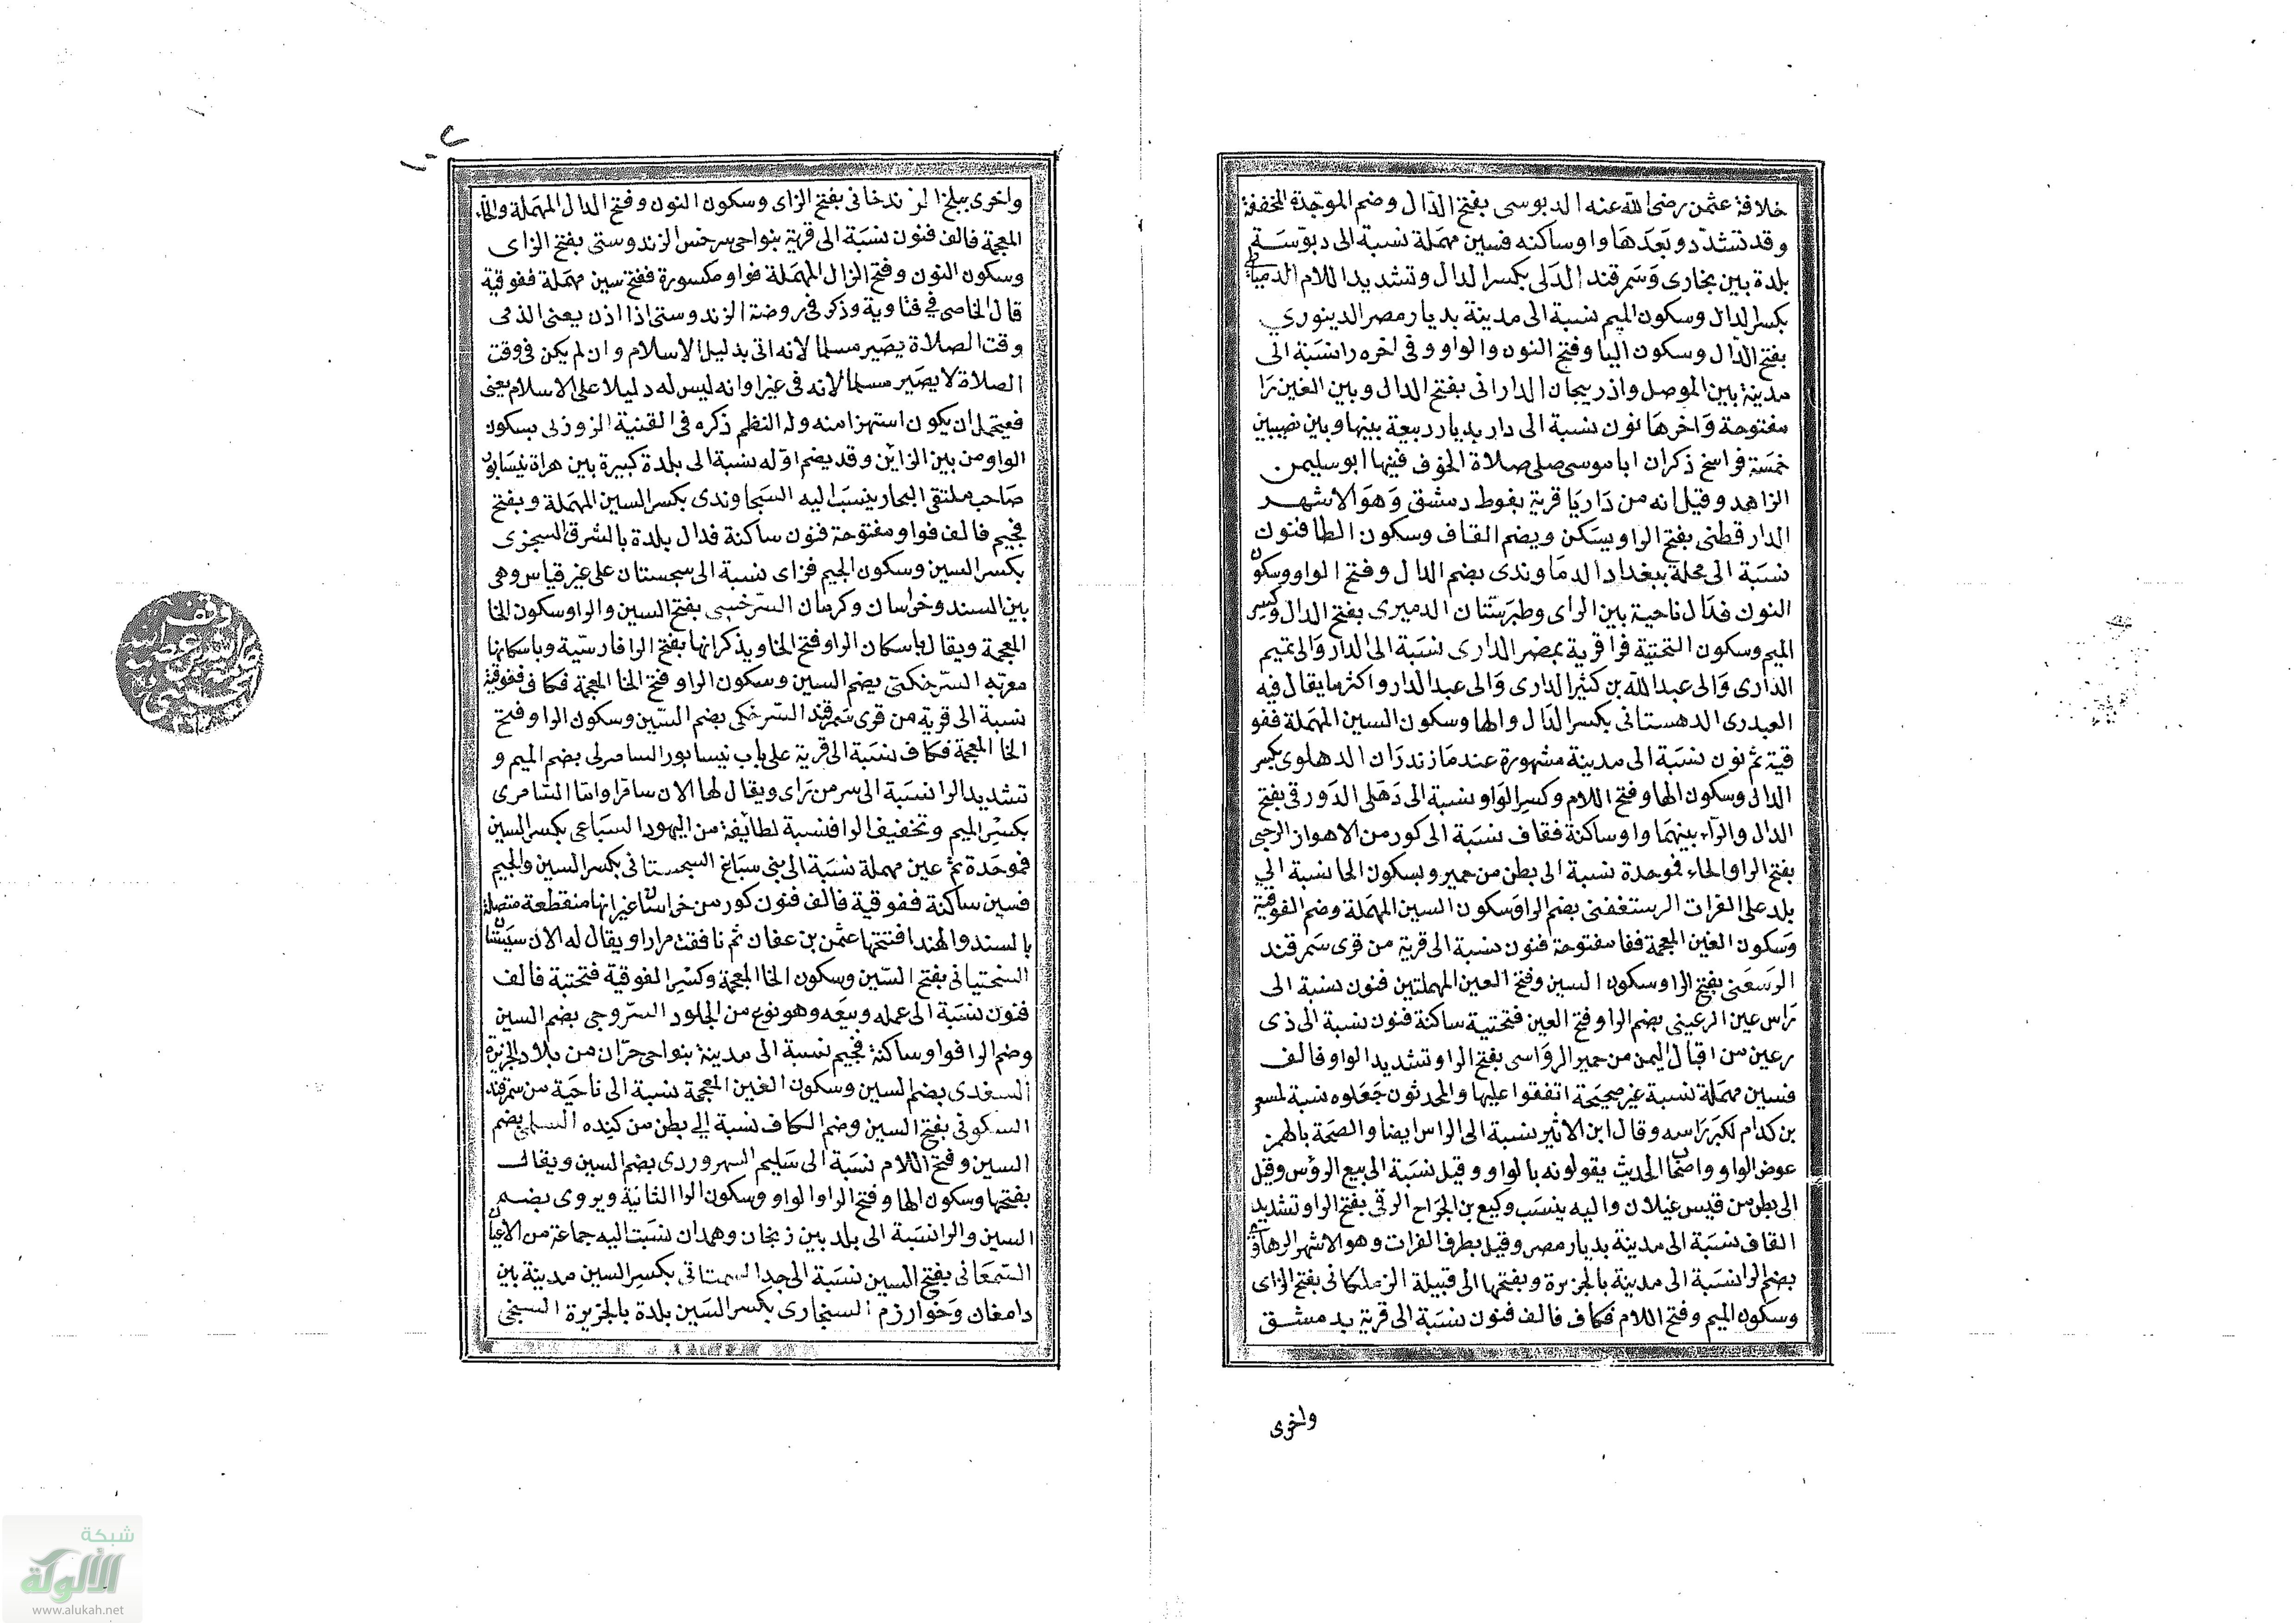 خلافة عثمن رضى الله عنه الدبوسى بفتح الدال وضم الموحدة المخففة
وقد تشدد وبعدها واو ساكنه فسين مهملة نسبة الى دبوسة
بلدة بين بخارى وسمرقند الدلى بكسر الدال وتشديد اللام الدمياطى
بكسر الدال وسكون الميم نسبة الى مدينة بديار مصر الدينوري
بفتح الدال وسكون اليا وفتح النون والواو وفى اخره را نسبة الى
مدينة بين الموصل واذربيجان الدارانى بفتح الدال وبين الغين را
مفتوحة واخرها نون نسبة الى دار بديار ربيعة بينها وبين نصيبين
خمسة فراسخ ذكر ان ابا موسى صلى صلاة الخوف فيها ابو سليمن
الزاهد وقيل انه من داريا قرية بغوط دمشق وهو الاشهر
الدارقطنى بفتح الرا ويسكن ويضم القاف وسكون الطا فنون
نسبة الى محلة ببغداد الدماوندى بضم الدال وفتح الواو وسكون
النون فدال ناحية بين الراى وطبرستان الدميرى بفتح الدال وكسر
الميم وسكون التحتية فرا قرية بمصر الدارى نسبة الى الدار والى تميم
الدارى والى عبد الله بن كثير الدارى والى عبد الدار واكثر ما يقال فيه
العبدرى الدهستانى بكسر الدال والها وسكون السين المهملة ففو
قية ثم نون نسبة الى مدينة مشهورة عند مازندران الدهلوى بكسر
الدال وسكون الها وفتح اللام وكسر الواو نسبة الى دهلى الدورقى بفتح
الدال والراء بينهما واو ساكنة فقاف نسبة الى كور من الاهواز الرحبى
بفتح الرا والحاء فموحدة نسبة الى بطن من حمير وبسكون الحا نسبة الي
بلد على الفرات الرستغفنى بضم الرا وسكون السين المهملة وضم الفوقية
وسكون الغين المعجمة ففا مفتوحة فنون نسبة الى قرية من قرى سمرقند
الرسعنى بفتح الرا وسكون السين وفتح العين المهملتين فنون نسبة الى
راس عين الرعينى بضم الرا وفتح العين فتحتية ساكنة فنون نسبة الى ذى
رعين من اقيال اليمن من حمير الرواسى بفتح الرا وتشديد الواو فالف
فسين مهملة نسبة غير صحيحة اتفقوا عليها والمحدثون جعلوه نسبة لمسعر
بن كدام لكبر راسه وقال ابن الاثير نسبة الى الراس ايضا والصحة بالهمز
عوض الواو واصحاب الحديث يقولونه بالواو وقيل نسبة الى بيع الروس وقيل
الى بطن من قيس غيلان واليه ينسب وكيع بن الجراح الرقى بفتح الرا وتشديد
القاف نسبة الى مدينة بديار مصر وقيل بطرف الفرات وهو الاشهر الرهاوى
بضم الرا نسبة الى مدينة بالجزيرة وبفتحها الى قبيلة الزملكانى بفتح الزاى
وسكون الميم وفتح اللام فكاف فالف فنون نسبة الى قرية بدمشق
واخرى
١٠٧
واخرى ببلخ الزندخانى بفتح الزاى وسكون النون وفتح الدال المهملة والخاء
المعجمة فالف فنون نسبة الى قرية بنواحى سرخس الزندوستى بفتح الزاى
وسكون النون وفتح الزال المهملة فواو مكسورة ففتح سين مهملة ففوقية
قال الخاصى في فتاويه وذكر فى روضة الزندوستى اذا اذن يعنى الذمى
وقت الصلاة يصير مسلما لانه اتى بدليل الاسلام وان لم يكن فى وقت
الصلاة لا يصير مسلما لانه فى غير اوانه ليس له دليلا على الاسلام يعنى
فيحتمل ان يكون استهزا منه وله النظم ذكره فى القنية الزوزنى بسكون
الواو من بين الزائين وقد يضم اوله نسبة الى بلدة كبيرة بين هراة نيسابور
صاحب ملتقى البحار ينسب اليه السجاوندى بكسر السين المهملة وبفتح
فجيم فالف فواو مفتوحة فنون ساكنة فدال بلدة بالشرق السجزى
بكسر السين وسكون الجيم فزاى نسبة الى سجستان على غير قياس وهى
بين السند وخراسان وكرمان السرخسى بفتح السين والراو سكون الخا
المعجمة ويقال باسكان الرا وفتح الخا ويذكر انها بفتح الرا فارسية وباسكانها
معربه السرخكتى بضم السين وسكون الرا وفتح الخا المعجمة فكاف ففوقية
نسبة الى قرية من قرى سمرقند السرخكى بضم السين وسكون الرا وفتح
الخا المعجمة فكاف نسبة الى قرية على باب نيسابور السامرى بضم الميم و
تشديد الرا نسبة الى سر من راى ويقال لها الان سامرا واما السامرى
بكسر الميم وتخفيف الرا فنسبة لطائفة من اليهود السباعى بكسر السين
فموحدة ثم عين مهملة نسبة الى بنى سباغ السجستانى بكسر السين والجيم
فسين ساكنة ففوقية فالف فنون كور من خراسان غير انها منقطعة متصلة
بالسند والهند افتتحها عثمن بن عفان ثم نافقت مرارا ويقال له الان سيستان
السختيانى بفتح السين وسكون الخا المعجمة وكسر الفوقية فتحتية فالف
فنون نسبة الى عمله وبيعه وهو نوع من الجلود السروجى بضم السين
وضم الرا فواو ساكنة فجيم نسبة الى مدينة بنواحى حران من بلاد الجزيرة
السغدى بضم السين وسكون الغين المعجمة نسبة الى ناحية من سمرقند
السكونى بفتح السين وضم الكاف نسبة الى بطن من كنده السلمى بضم
السين وفتح اللام نسبة الى سليم السهروردى بضم السين ويقال
بفتحها وسكون الها وفتح الرا والواو وسكون الرا الثانية ويروى بضم
السين والرا نسبة الى بلد بين زنجان وهمدان نسبت اليه جماعة من الاعيان
السمعانى بفتح السين نسبة الى جد السمنانى بكسر السين مدينة بين
دامغان وخوارزم السنجارى بكسر السين بلدة بالجزيرة السنجى
شبكة
الألوكة
www.alukah.net